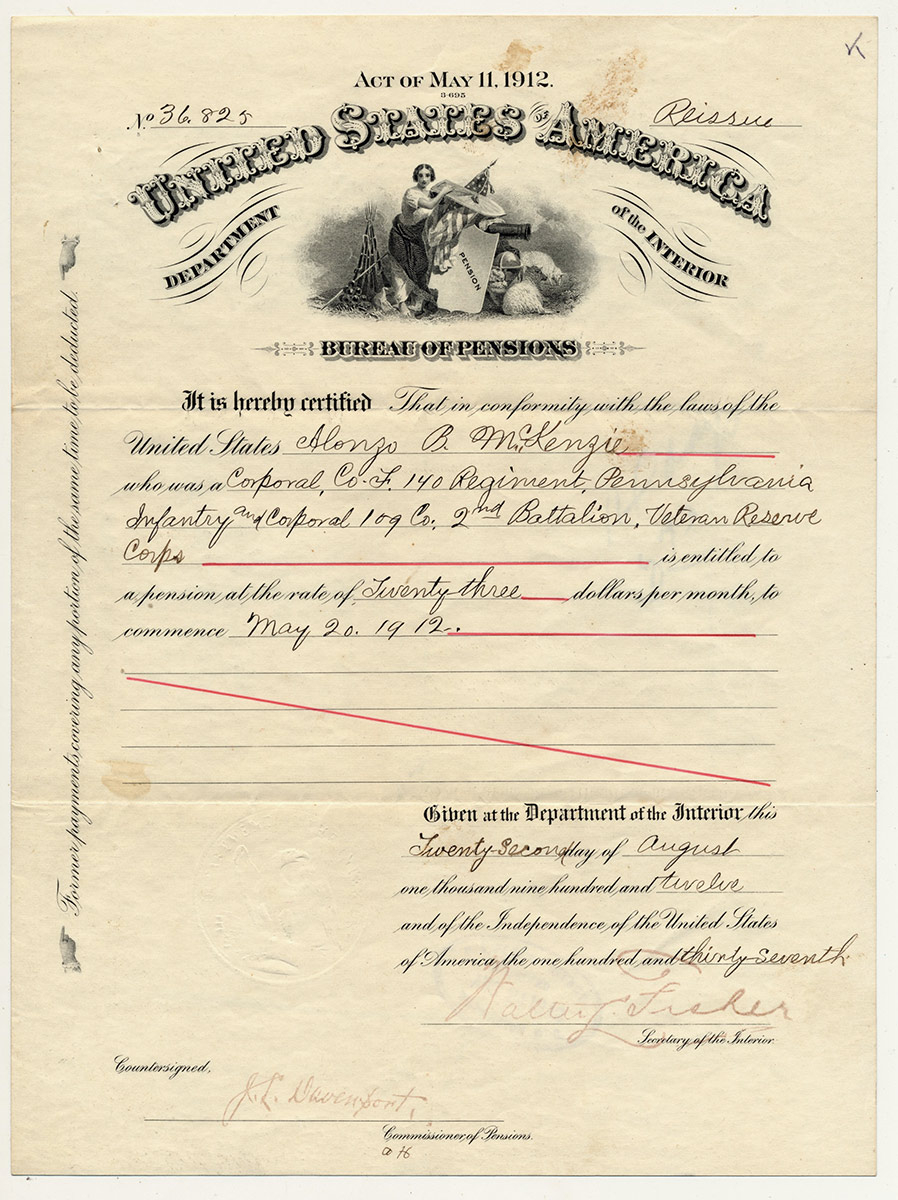 Act of May 11, 1912.
3-695
No 36,825
Reissue
United States of America
Department of the Interior
PENSION
BUREAU OF PENSIONS
It is hereby certified That in conformity with the laws of the
United States Alonzo B. McKenzie
who was a Corporal, Co. F. 140 Regiment, Pennsylvania
Infantry and Corporal 109 Co. 2nd Battalion, Veteran Reserve
Corps is entitled to
a pension at the rate of Twenty three dollars per month, to
commence May 20. 1912.
Former payments covering any portion of the same time to be deducted.
Given at the Department of the Interior this
Twenty-second day of August
one thousand nine hundred and twelve
and of the Independence of the United States
of America the one hundred and thirty-seventh
Walter L. Fisher
Secretary of the Interior
Countersigned,
J. L. Davenport,
Commissioner of Pensions.